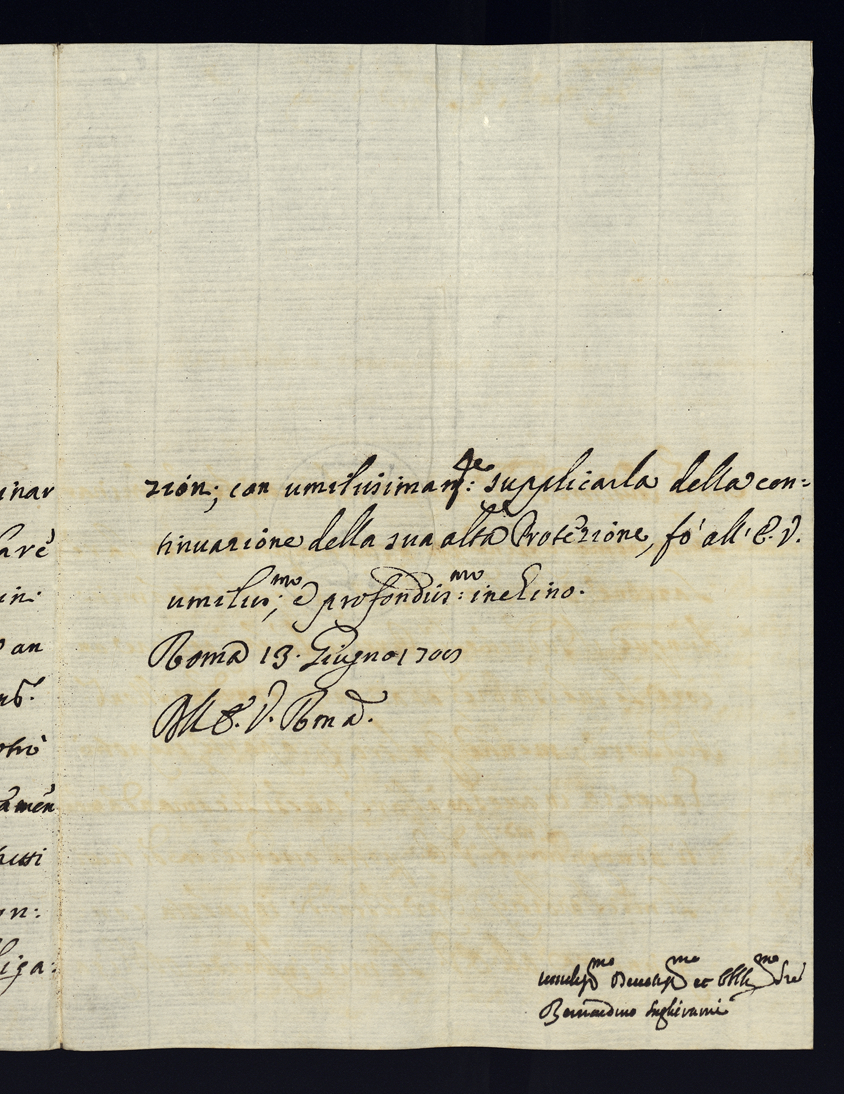 inar
farè
in:
an
otrò
amen
tutti
on:
liga:
zion; con umilissimam:te supplicarla della con=
tinuazione della sua alta Protezzione, fò all' E. V.
umiliss:mo, e profondiss:mo inchino.
Roma 13. Giugno 1709
All' E. V. Roma.
Umiliss.mo Devotiss.mo et Obblig.mo Sre
Bernardino